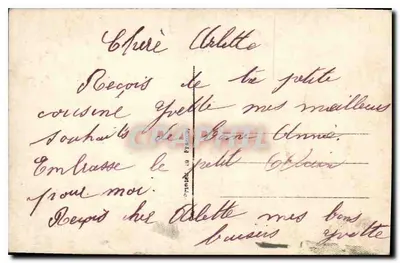 Cheré Arlette
Reçois de ta petite
cousine Yvette mes meilleurs
souhaits de Bonne Année.
Embrasse le petit
pour moi.
Reçois cher Arlette mes bons
baisers Yvette